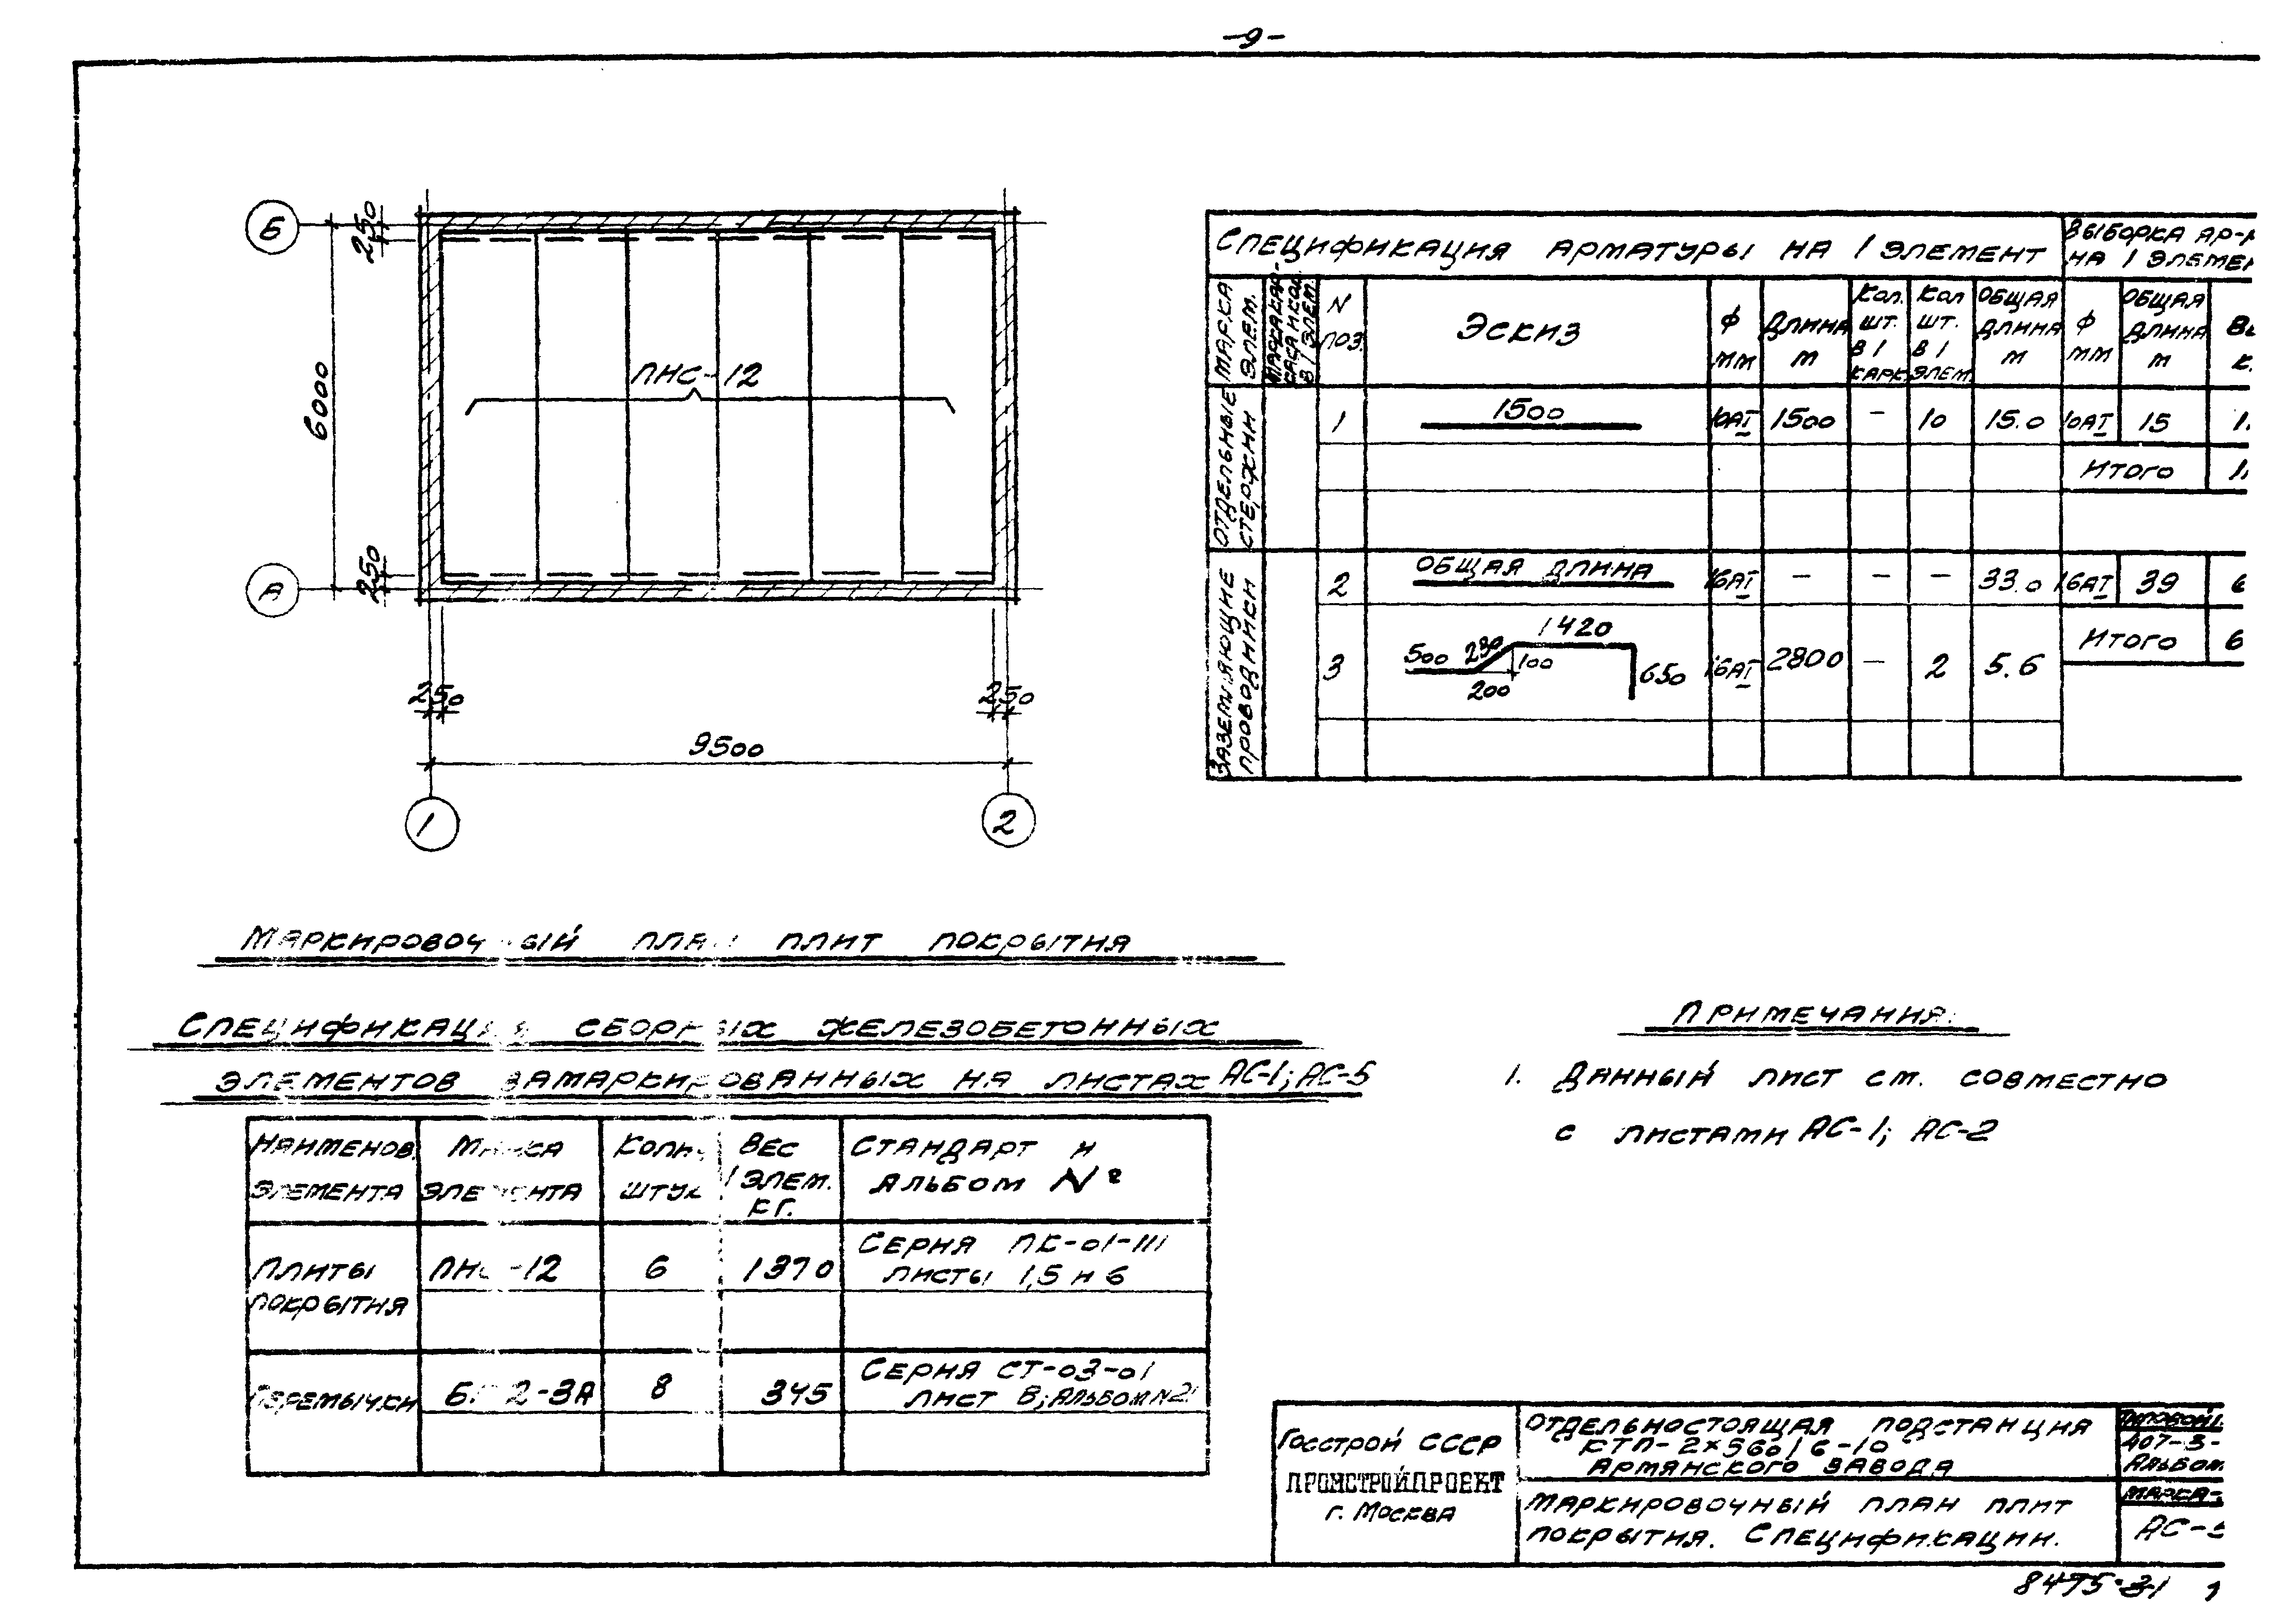 -9-
Б
250
6000
ПНС-12
250
А
250
250
9500
1
2
Спецификация арматуры на 1 элемент
на 1
Марка элем.
N поз.
Эскиз
Ф мм
Длина м
Кол. шт. в 1 карк.
Кол шт. в 1 элем.
Общая длина м
Ф мм
Общая длина м
Отдельные стержни
1
1500
10АI
1500
-
10
15.0
10АI
15
Итого
Заземляющие проводники
2
Общая длина
16АI
-
-
-
33.0
16АI
39
Итого
3
500
230
1420
100
200
650
16АI
2800
-
2
5.6
Маркировочный план плит покрытия
Спецификация сборных железобетонных
элементов замаркированных на листах АС-1; АС-5
Наименов. элемента
Марка элемента
Колич штук
Вес 1 элем. кг.
Стандарт и альбом №
Плиты покрытия
ПНС-12
6
1370
Серия ПК-01-111
листы 1,5 и 6
Перемычки
8
345
Серия СТ-03-01
лист В; Альбом N2
Примечания:
1. Данный лист см. совместно
с листами АС-1; АС-2
Госстрой СССР
ПРОМСТРОЙПРОЕКТ
г. Москва
Отдельностоящая подстанция
КТП-2×560/6-10
Армянского завода
Маркировочный план плит
покрытия. Спецификации.
407-3-
Альбом
Марка-
АС-